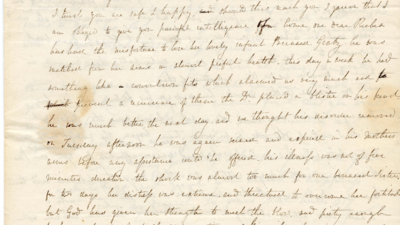 I trust you are safe & happy, should this reach you I grieve that I
am obliged to give you painful intelligence from home, our dear Rachel
has had the misfortune to lose her lovely infant Benjamin Gratz, he was
snatched from her arms in almost perfect health, this day a week he had
something like a convulsive fit which alarmed us very much and to
prevent a recurrence of them the Dr. placed a blister on his head
he was much better the next day and we thought his disorder removed
on Tuesday afternoon he was again seized and expired in his mothers
arms before any assistance could be offered, his illness was not of five
minutes duration the shock was almost too much for our beloved Sister
for two days her distress was extreme and threatened to overcome her fortitude
but God has given her strength to meet the stroke and piety enough